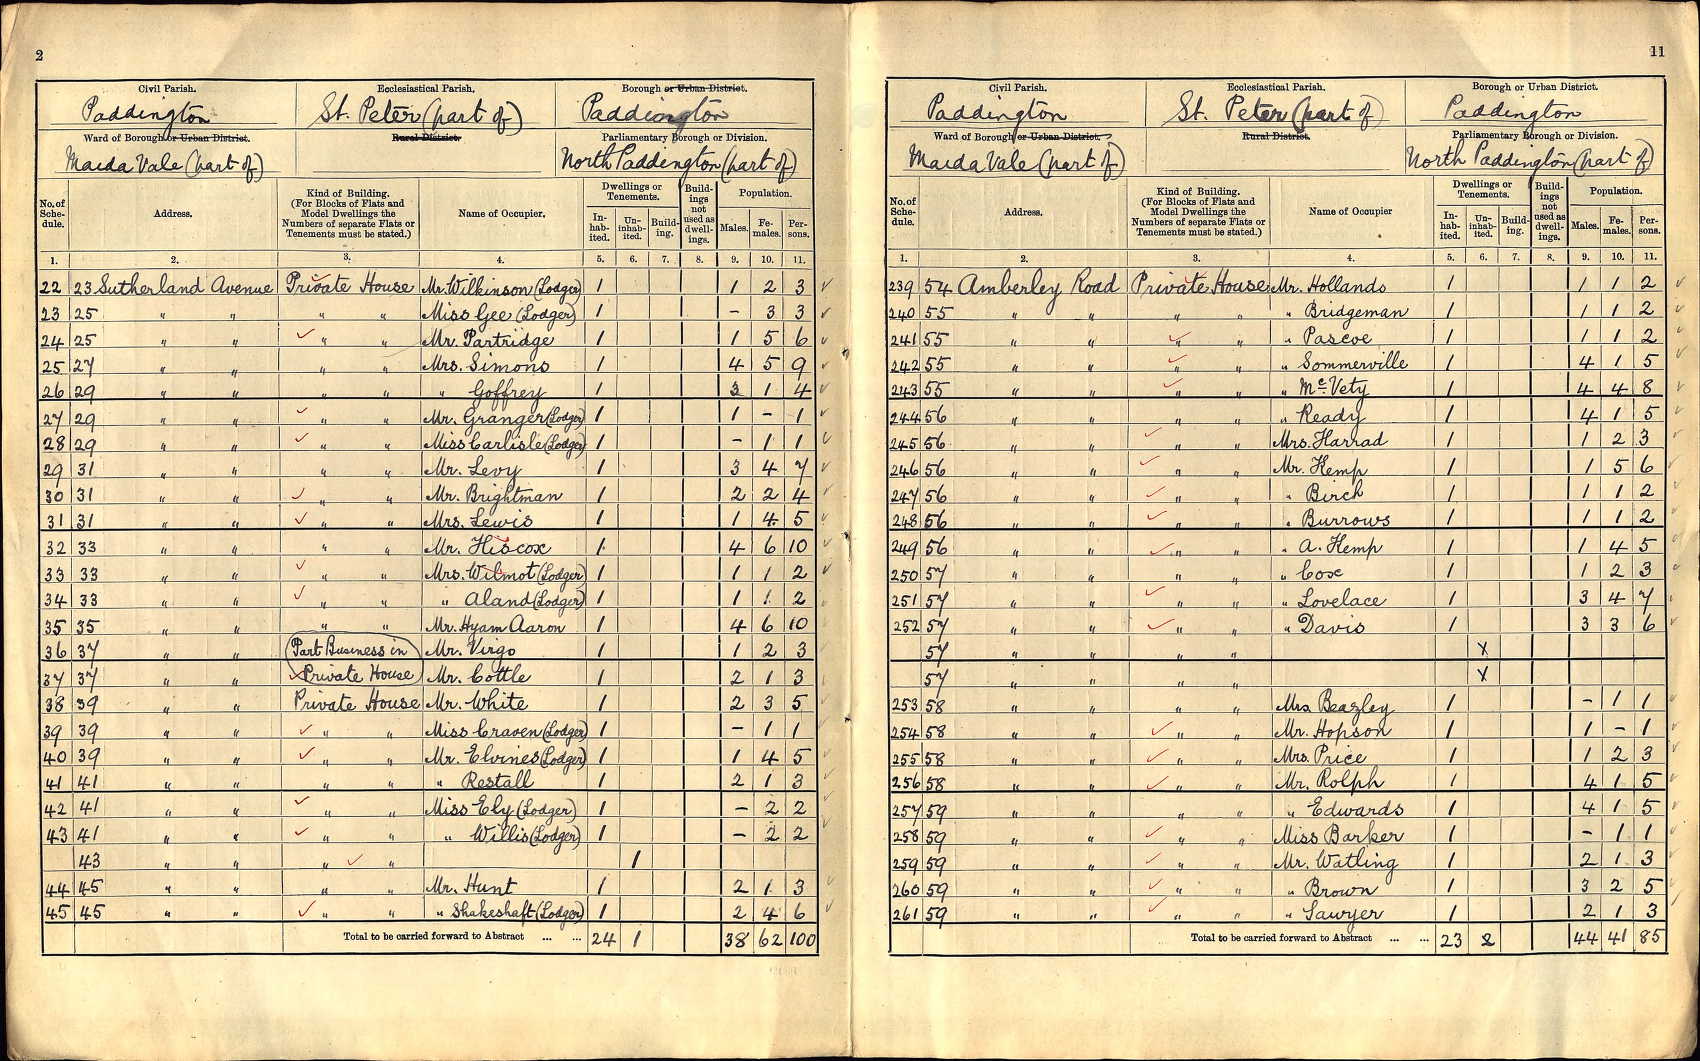 2
Civil Parish. Ecclesiastical Parish, Borough or Urban District.
Paddington St. Peter (part of) Paddington
Ward of Borough or Urban District. Rural District. Parliamentary Borough or Division.
Maida Vale (part of) North Paddington (part of)
No. of Schedule. Address. Kind of Building. (For Blocks of Flats and Model Dwellings the Numbers of separate Flats or Tenements must be stated.) Name of Occupier. Dwellings or Tenements. Inhabited. Uninhabited. Building. Buildings not used as dwellings. Population. Males. Females. Persons.
1. 2. 3. 4. 5. 6. 7. 8. 9. 10. 11.
22 23 Sutherland Avenue Private House Mr. Wilkinson (Lodger) 1 1 2 3
23 25 " " " " Miss Gee (Lodger) 1 - 3 3
24 25 " " " " Mr. Partridge 1 1 5 6
25 27 " " " " Mrs. Simons 1 4 5 9
26 29 " " " " " Goffrey 1 3 1 4
27 29 " " " " Mr. Granger (Lodger) 1 1 - 1
28 29 " " " " Miss Carlisle (Lodger) 1 - 1 1
29 31 " " " " Mr. Levy 1 3 4 7
30 31 " " " " Mr. Brightman 1 2 2 4
31 31 " " " " Mrs. Lewis 1 1 4 5
32 33 " " " " Mr. Hiscox 1 4 6 10
33 33 " " " " Mrs. Wilmot (Lodger) 1 1 1 2
34 33 " " " " " Aland (Lodger) 1 1 1 2
35 35 " " " " Mr. Hyam Aaron 1 4 6 10
36 37 " " Part Business in Mr. Virgo 1 1 2 3
37 37 " " Private House Mr. Cottle 1 2 1 3
38 39 " " Private House Mr. White 1 2 3 5
39 39 " " " " Miss Craven (Lodger) 1 - 1 1
40 39 " " " " Mr. Elvines (Lodger) 1 1 4 5
41 41 " " " " " Restall 1 2 1 3
42 41 " " " " Miss Ely (Lodger) 1 - 2 2
43 41 " " " " " Willis (Lodger) 1 - 2 2
43 " " " " 1
44 45 " " " " Mr. Hunt 1 2 1 3
45 45 " " " " " Shakeshaft (Lodger) 1 2 4 6
Total to be carried forward to Abstract ... ... 24 1 38 62 100
11
Civil Parish. Ecclesiastical Parish. Borough or Urban District.
Paddington St. Peter (part of) Paddington
Ward of Borough or Urban District. Rural District. Parliamentary Borough or Division.
Maida Vale (part of) North Paddington (part of)
No. of Schedule. Address. Kind of Building. (For Blocks of Flats and Model Dwellings the Numbers of separate Flats or Tenements must be stated.) Name of Occupier Dwellings or Tenements. Inhabited. Uninhabited. Building. Buildings not used as dwellings. Population. Males. Females. Persons.
1. 2. 3. 4. 5. 6. 7. 8. 9. 10. 11.
239 54 Amberley Road Private House Mr. Hollands 1 1 1 2
240 55 " " " " " Bridgeman 1 1 1 2
241 55 " " " " " Pascoe 1 1 1 2
242 55 " " " " " Sommerville 1 4 1 5
243 55 " " " " " McVety 1 4 4 8
244 56 " " " " " Ready 1 4 1 5
245 56 " " " " Mrs. Harrad 1 1 2 3
246 56 " " " " Mr. Kemp 1 1 5 6
247 56 " " " " " Birch 1 1 1 2
248 56 " " " " " Burrows 1 1 1 2
249 56 " " " " " A. Kemp 1 1 4 5
250 57 " " " " " Cox 1 1 2 3
251 57 " " " " " Lovelace 1 3 4 7
252 57 " " " " " Davis 1 3 3 6
57 " " " " X
57 " " " " X
253 58 " " " " Mrs. Beazley 1 - 1 1
254 58 " " " " Mr. Hopson 1 1 - 1
255 58 " " " " Mrs. Price 1 1 2 3
256 58 " " " " Mr. Rolph 1 4 1 5
257 59 " " " " " Edwards 1 4 1 5
258 59 " " " " Miss Barker 1 - 1 1
259 59 " " " " Mr. Watling 1 2 1 3
260 59 " " " " " Brown 1 3 2 5
261 59 " " " " " Sawyer 1 2 1 3
Total to be carried forward to Abstract ... ... 23 2 44 41 85